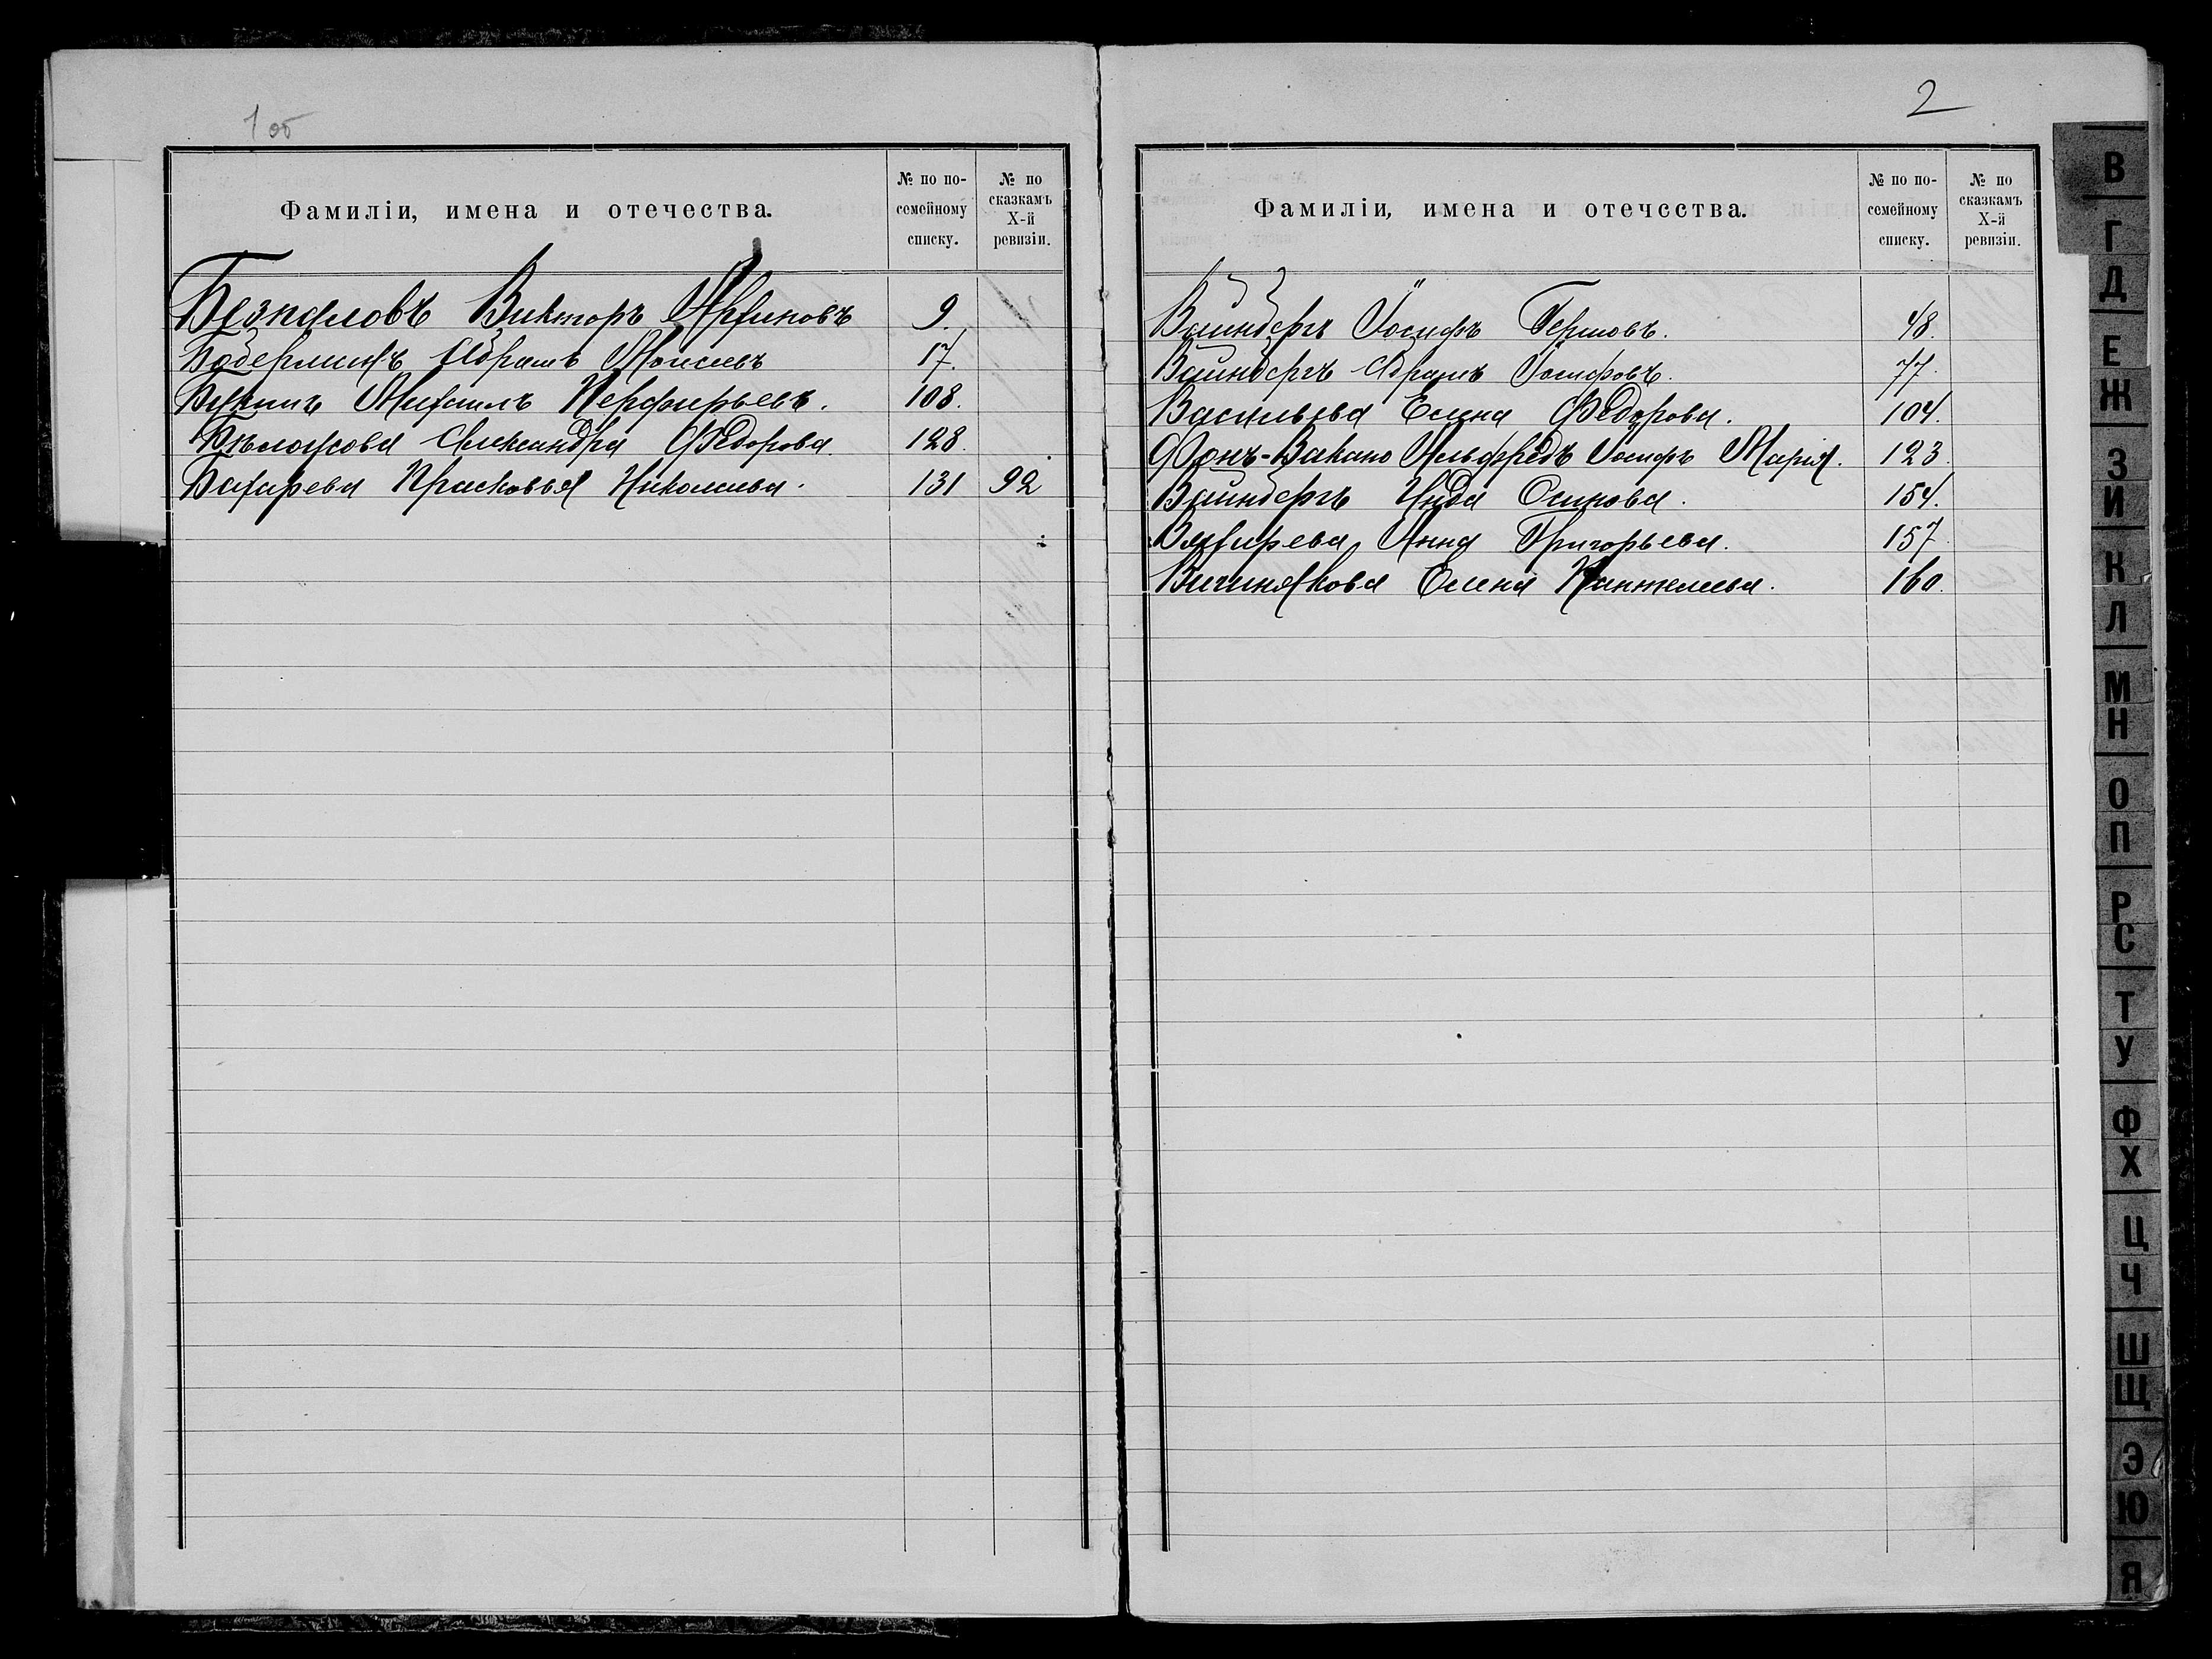 1 об
Фамиліи, имена и отечества.
№ по по-
семейному
списку.
№ по
сказкамъ
X-й
ревизіи.
Безпаловъ Викторъ 9.
Абрамъ Моисеевъ 17.
Михаилъ Перфирьевъ. 108.
Александра Федорова. 128.
Бахарева Прасковья Николаева. 131 92
2
Фамиліи, имена и отечества.
№ по по-
семейному
списку.
№ по
сказкамъ
X-й
ревизіи.
Вайнбергъ Іосифъ Гершовъ. 48.
Вайнбергъ Абрамъ Іосифовъ. 77.
Васильева Елена Федорова. 104.
Фонъ-Вакано Альфредъ Іосифъ Марія. 123.
Вайнбергъ Осипова. 154.
Анна Григорьева. 157.
Елена 160.
В
Г
Д
Е
Ж
З
И
К
Л
М
Н
О
П
Р
С
Т
У
Ф
Х
Ц
Ч
Ш
Щ
Э
Ю
Я